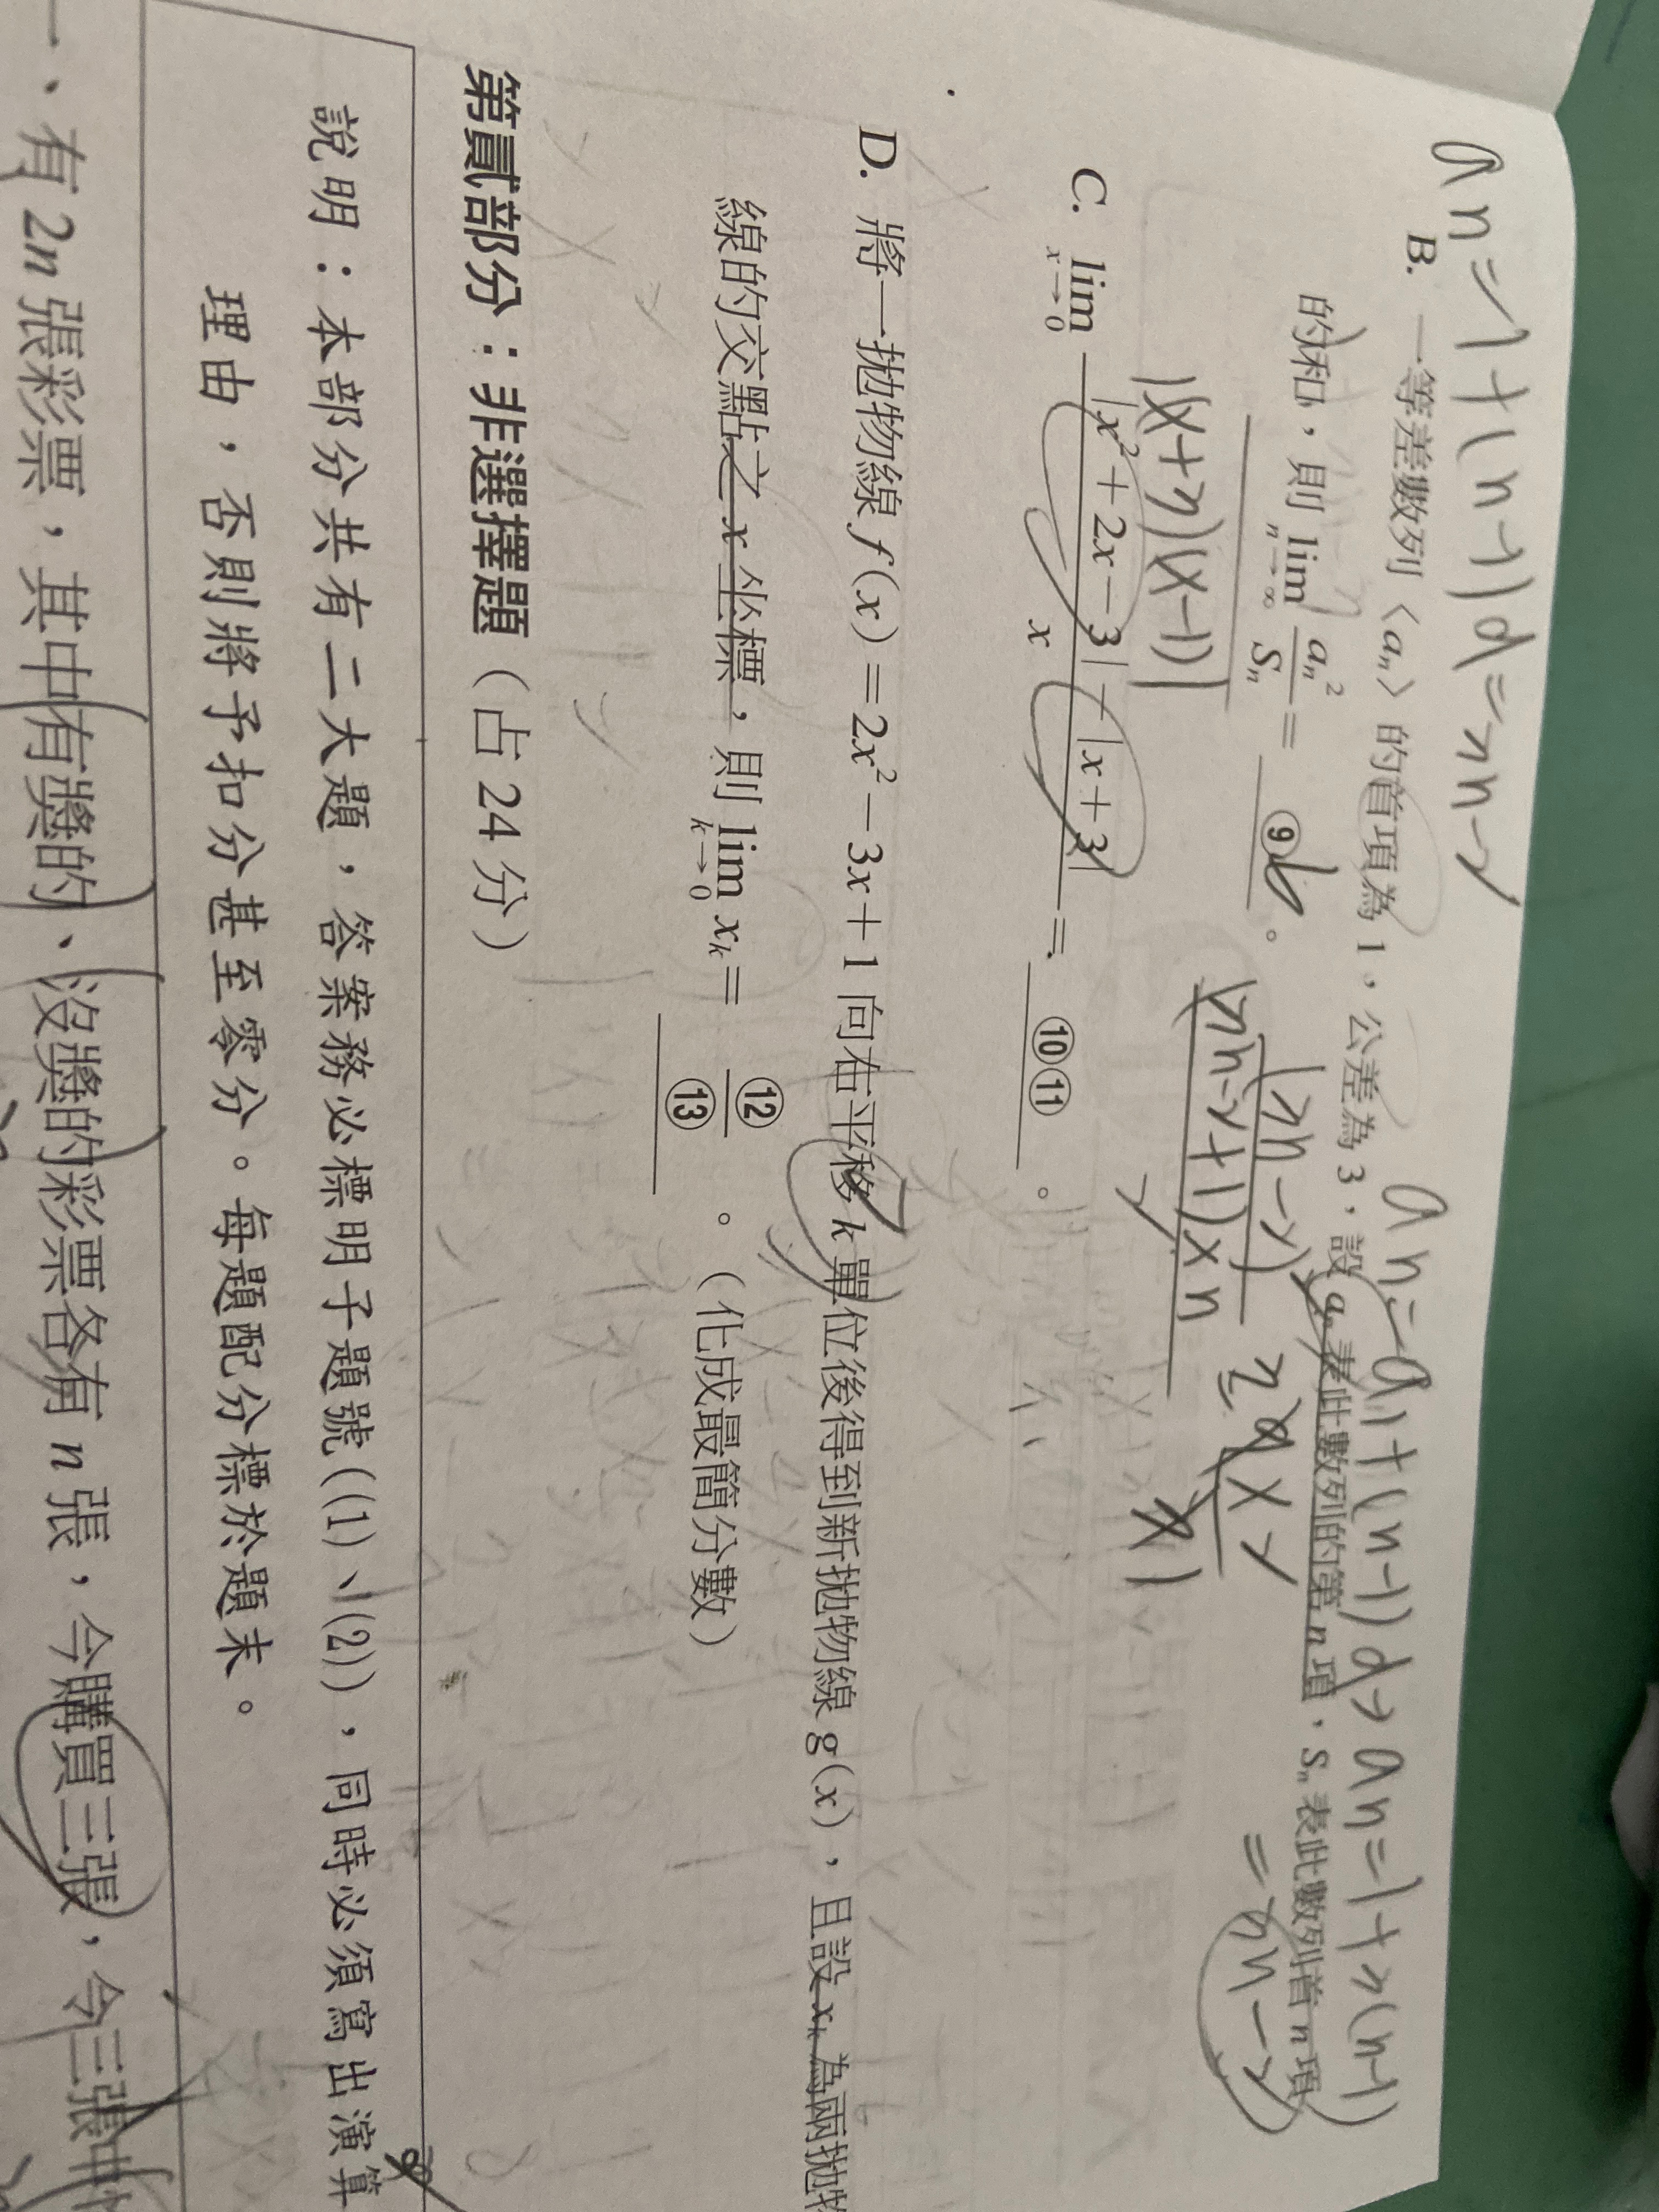 an=1+(n-1)d=3n-2
B. 一等差數列〈aₙ〉的首項為 1，公差為 3，設 aₙ 表此數列的第 n 項，Sₙ 表此數列首 n 項
的和，則 lim n→∞ aₙ²/Sₙ = ⑨ 6 。
an=a1+(n-1)d> an=1+3(n-1)
=3n-2
(3n-2)²
(3n-2+1)×n
2
|(x+3)(x-1)|
C. lim x→0 (|x²+2x-3|-|x+3|)/x = ⑩⑪ 。
D. 將一拋物線 f(x)=2x²-3x+1 向右平移 k 單位後得到新拋物線 g(x)，且設 xₖ 為兩拋物
線的交點之 x 坐標，則 lim k→0 xₖ = ⑫/⑬ 。（化成最簡分數）
第貳部分：非選擇題（占 24 分）
說明：本部分共有二大題，答案務必標明子題號((1)、(2))，同時必須寫出演算
理由，否則將予扣分甚至零分。每題配分標於題末。
一、有 2n 張彩票，其中有獎的、沒獎的彩票各有 n 張，今購買三張，令三張中